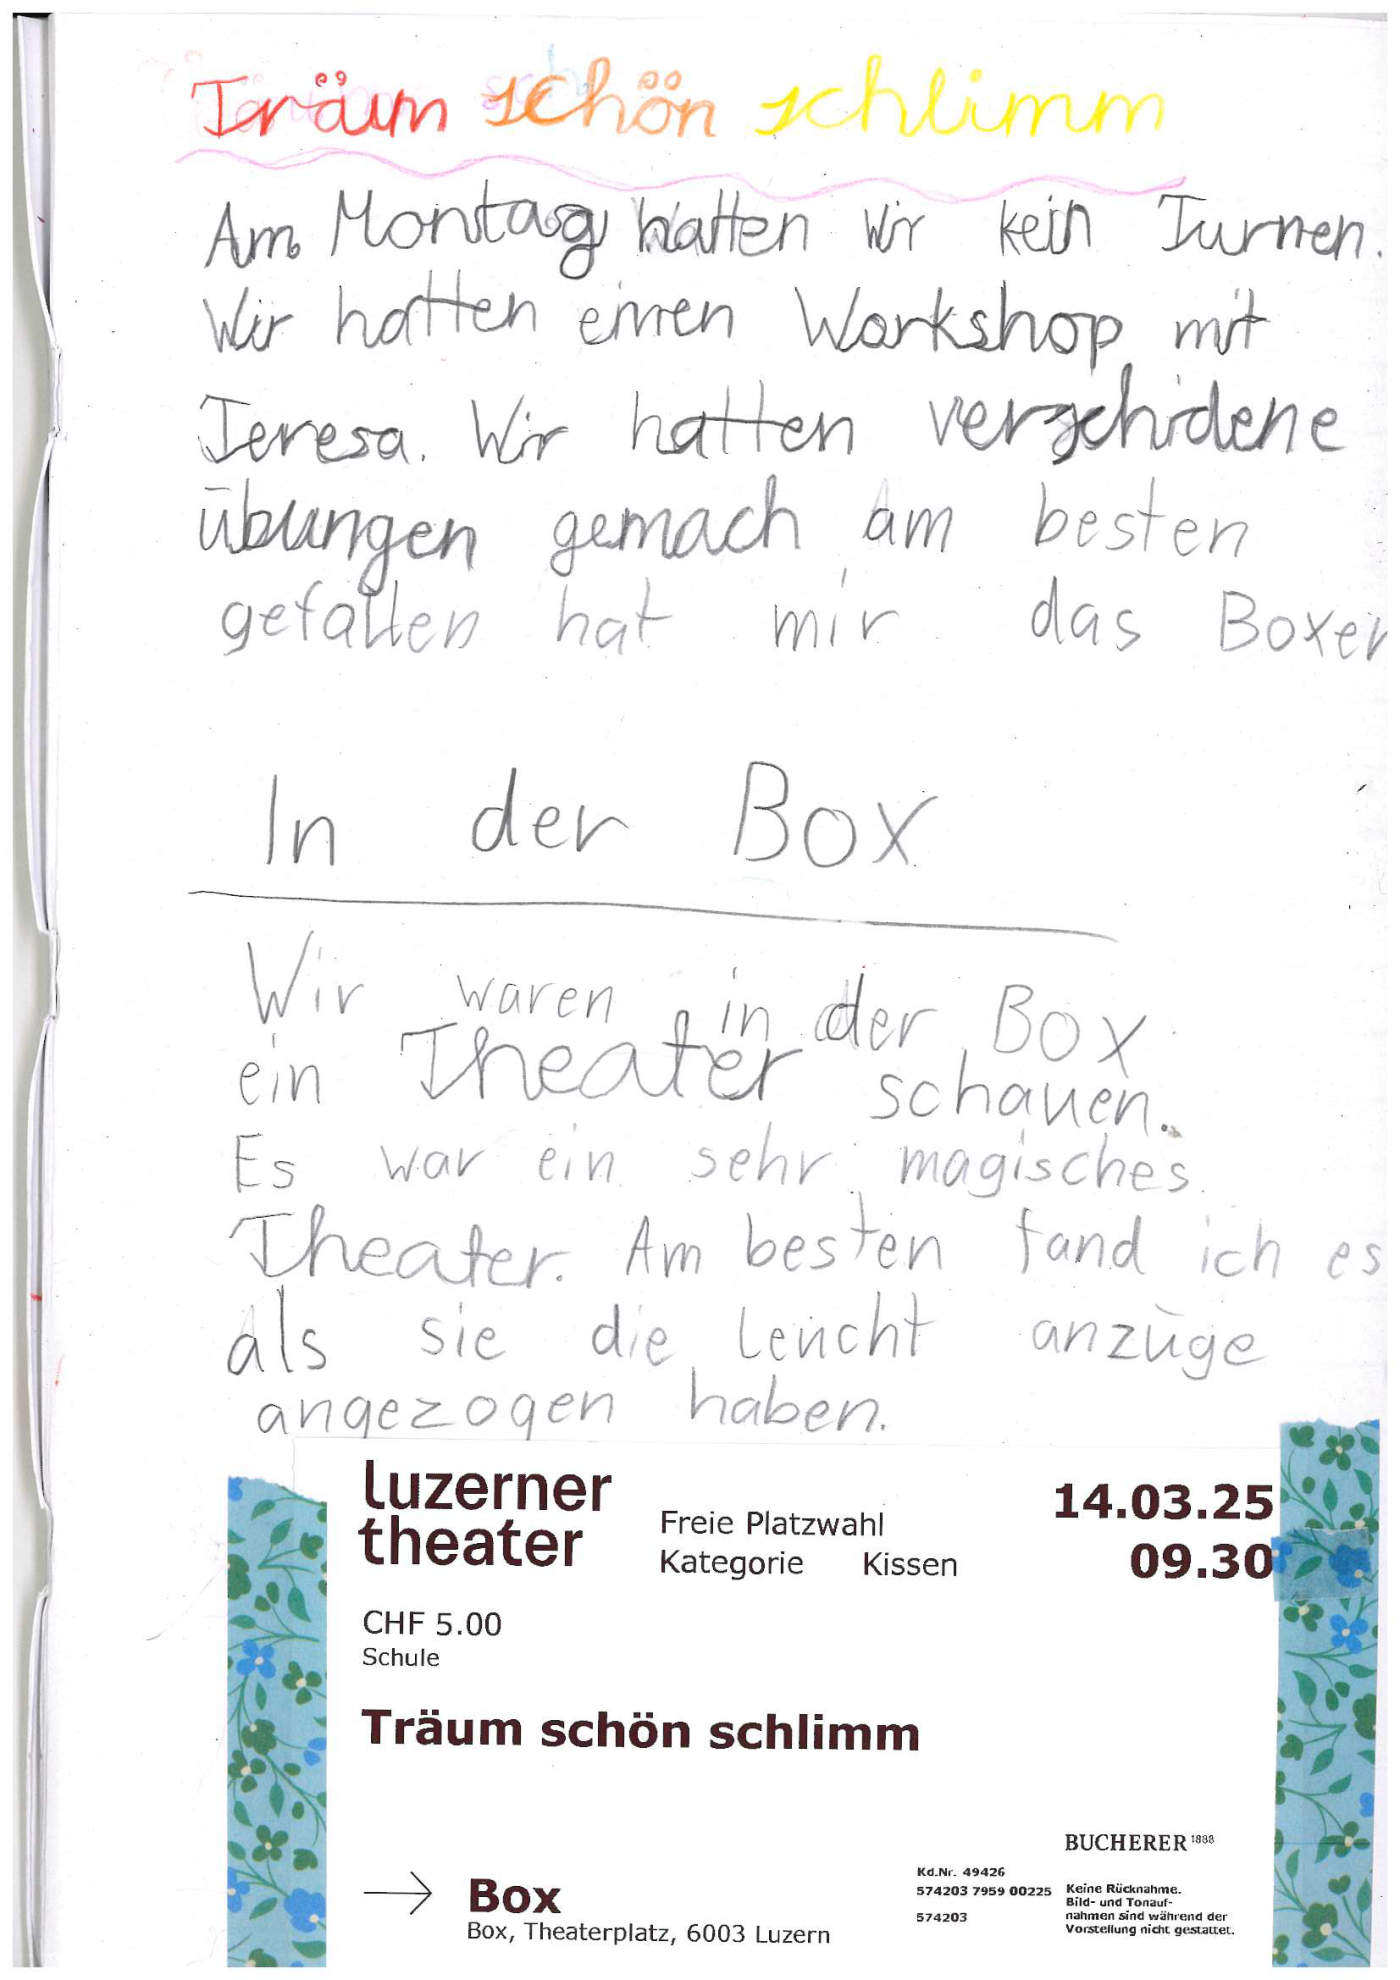 Träum schön schlimm
Am Montag hatten wir kein Turnen.
Wir hatten einen Workshop mit
Teresa. Wir hatten verschidene
übungen gemach am besten
gefallen hat mir das Boxen
In der Box
Wir waren in der Box
ein Theater schauen.
Es war ein sehr magisches
Theater. Am besten fand ich es
als sie die leucht anzüge
angezogen haben.
luzerner
theater
Freie Platzwahl
Kategorie Kissen
14.03.25
09.30
CHF 5.00
Schule
Träum schön schlimm
→ Box
Box, Theaterplatz, 6003 Luzern
BUCHERER 1888
Kd.Nr. 49426
574203 7959 00225
574203
Keine Rücknahme.
Bild- und Tonauf-
nahmen sind während der
Vorstellung nicht gestattet.